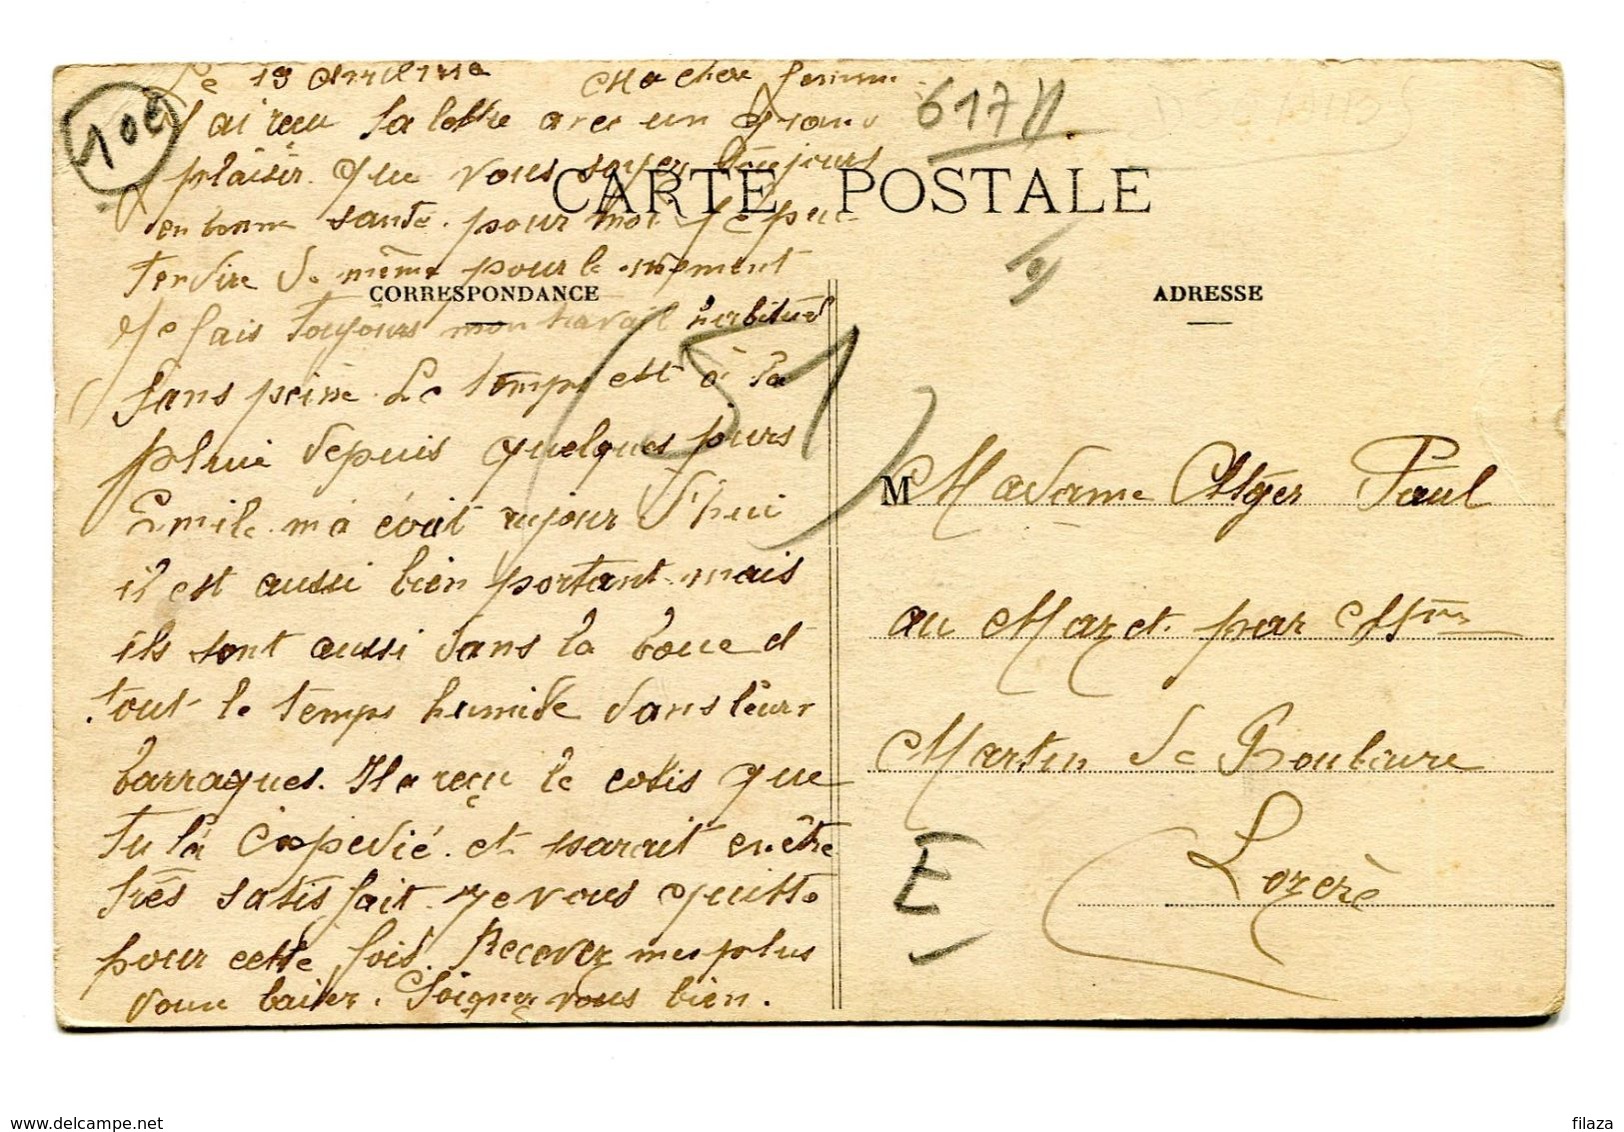 Le 19 Avril 191 Ma chere femme
J ai reçu ta lettre avec un gran
plaisir que vous soyez toujours
en bonne santé. pour moi je peu
ten dire de même pour le moment
Je fais toujours mon travail habituel
sans peine. Le temps est à la
pluie depuis quelques jours
Emile m'a écrit aujour d'hui
il est aussi bien portant mais
ils sont aussi dans la boue et
tout le temps humide dans leur
barraques. Il a reçu le colis que
tu la éxpedié et parait en être
très satisfait. Je vous quitte
pour cette fois. Recevez mes plus
doux baiser. Soignez vous bien.
109
617
CARTE POSTALE
CORRESPONDANCE
ADRESSE
51
M Madame Atger Paul
au Mazet par St
Martin de Boubaux
Lozère
E
www.delcampe.net
filaza